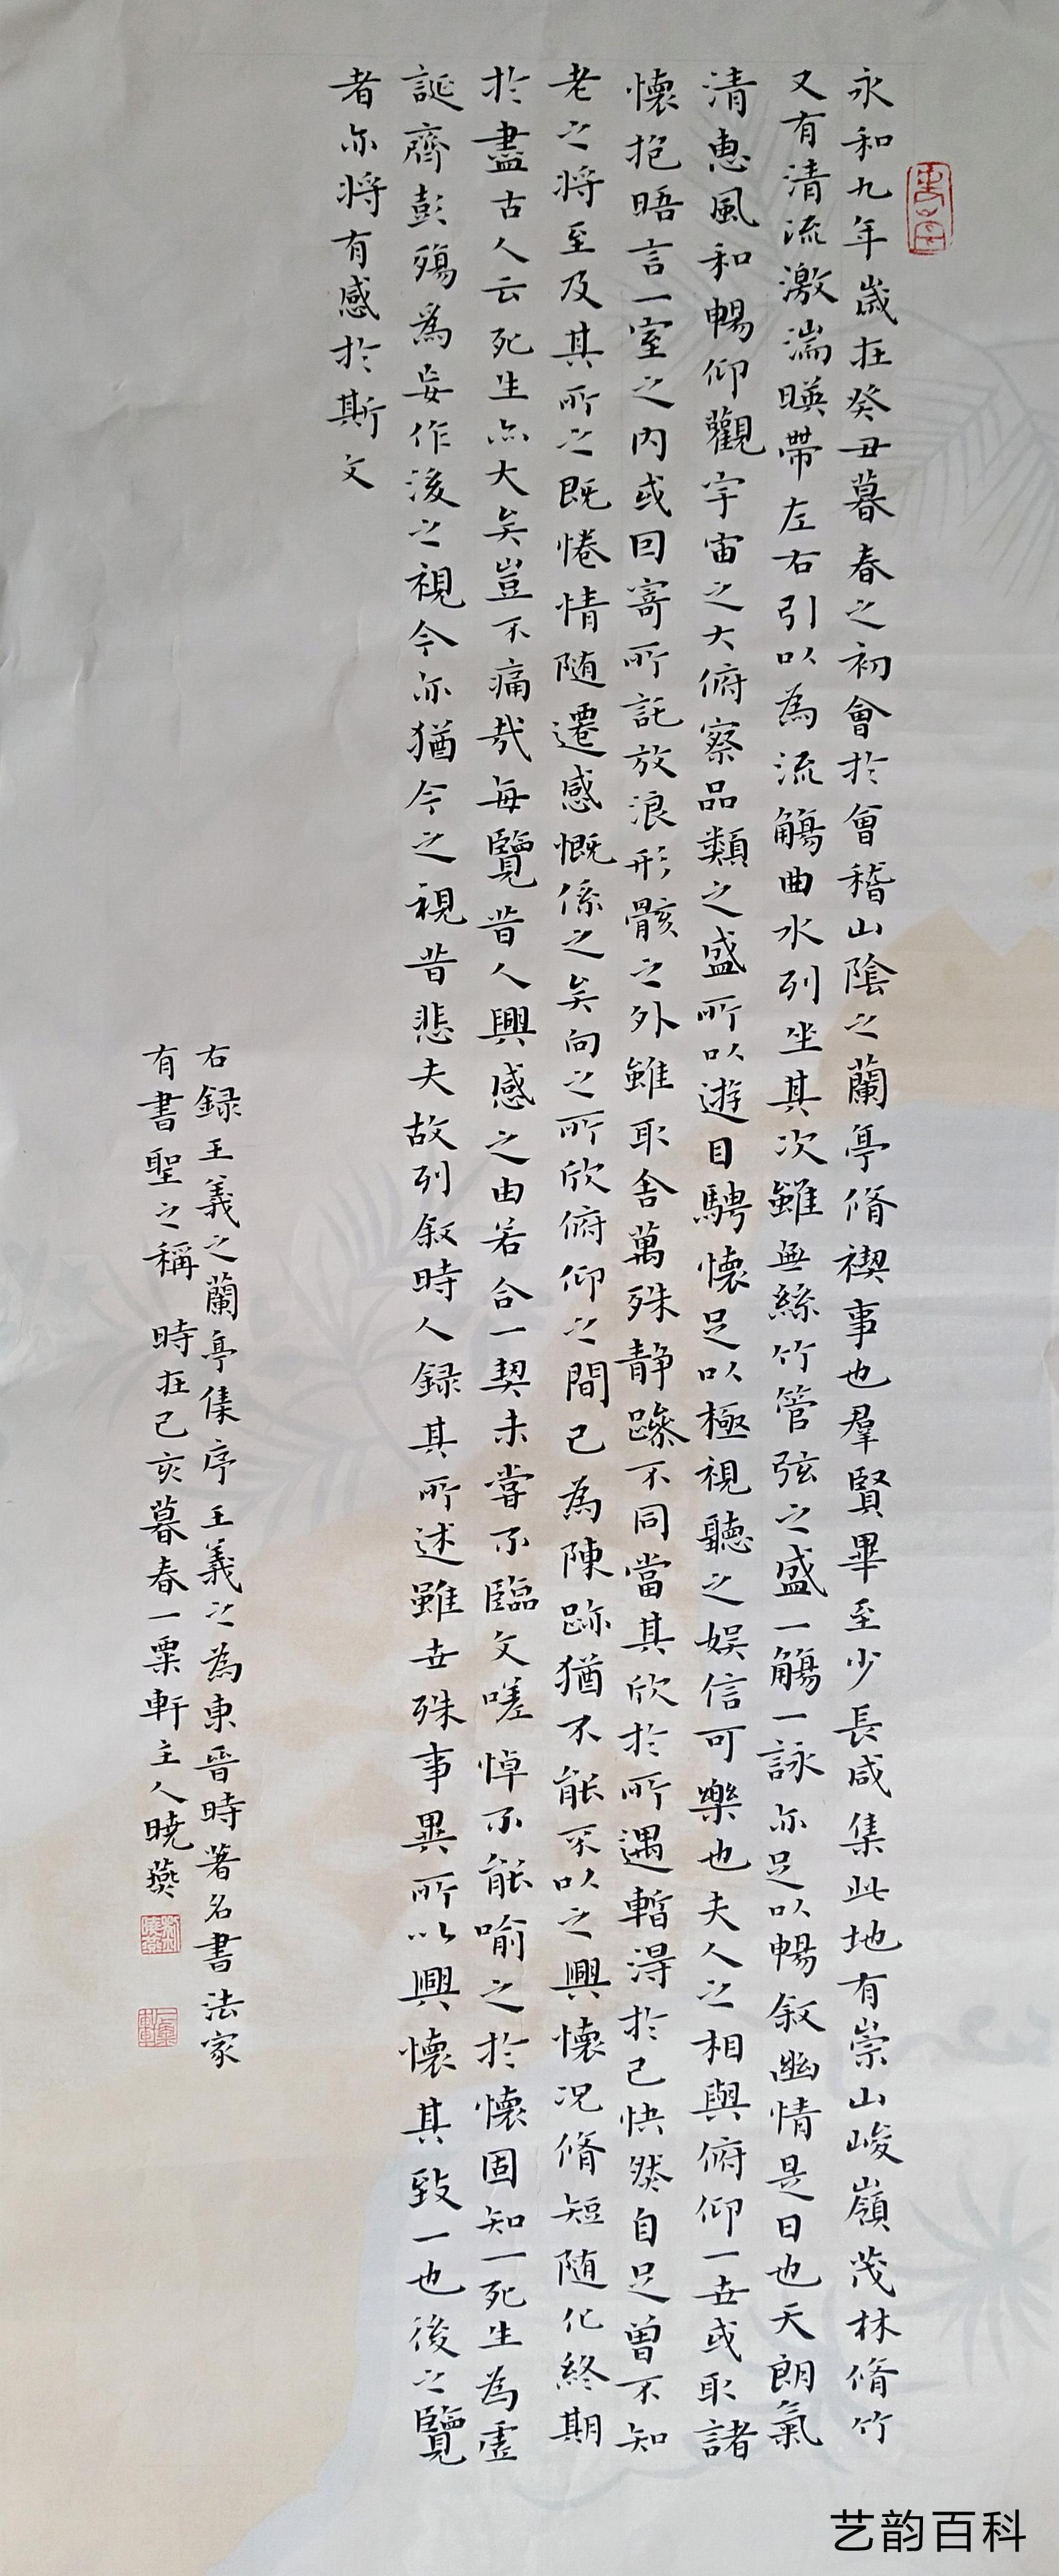 永和九年歲在癸丑暮春之初會於會稽山陰之蘭亭脩禊事也羣賢畢至少長咸集此地有崇山峻嶺茂林脩竹
又有清流激湍暎帶左右引以為流觴曲水列坐其次雖無絲竹管弦之盛一觴一詠亦足以暢叙幽情是日也天朗氣
清惠風和暢仰觀宇宙之大俯察品類之盛所以遊目騁懷足以極視聽之娱信可樂也夫人之相與俯仰一世或取諸
懷抱晤言一室之內或因寄所託放浪形骸之外雖取舍萬殊静躁不同當其欣於所遇暫得於己快然自足曾不知
老之將至及其所之既惓情随遷感慨係之矣向之所欣俯仰之間已為陳跡猶不能不以之興懷况脩短随化終期
於盡古人云死生亦大矣豈不痛哉每覽昔人興感之由若合一契未嘗不臨文嗟悼不能喻之於懷固知一死生為虛
誕齊彭殤為妄作後之視今亦猶今之視昔悲夫故列叙時人録其所述雖世殊事異所以興懷其致一也後之覽
者亦將有感於斯文
右録王羲之蘭亭集序王羲之為東晉時著名書法家
有書聖之稱 時在己亥暮春一粟軒主人曉燕
艺韵百科